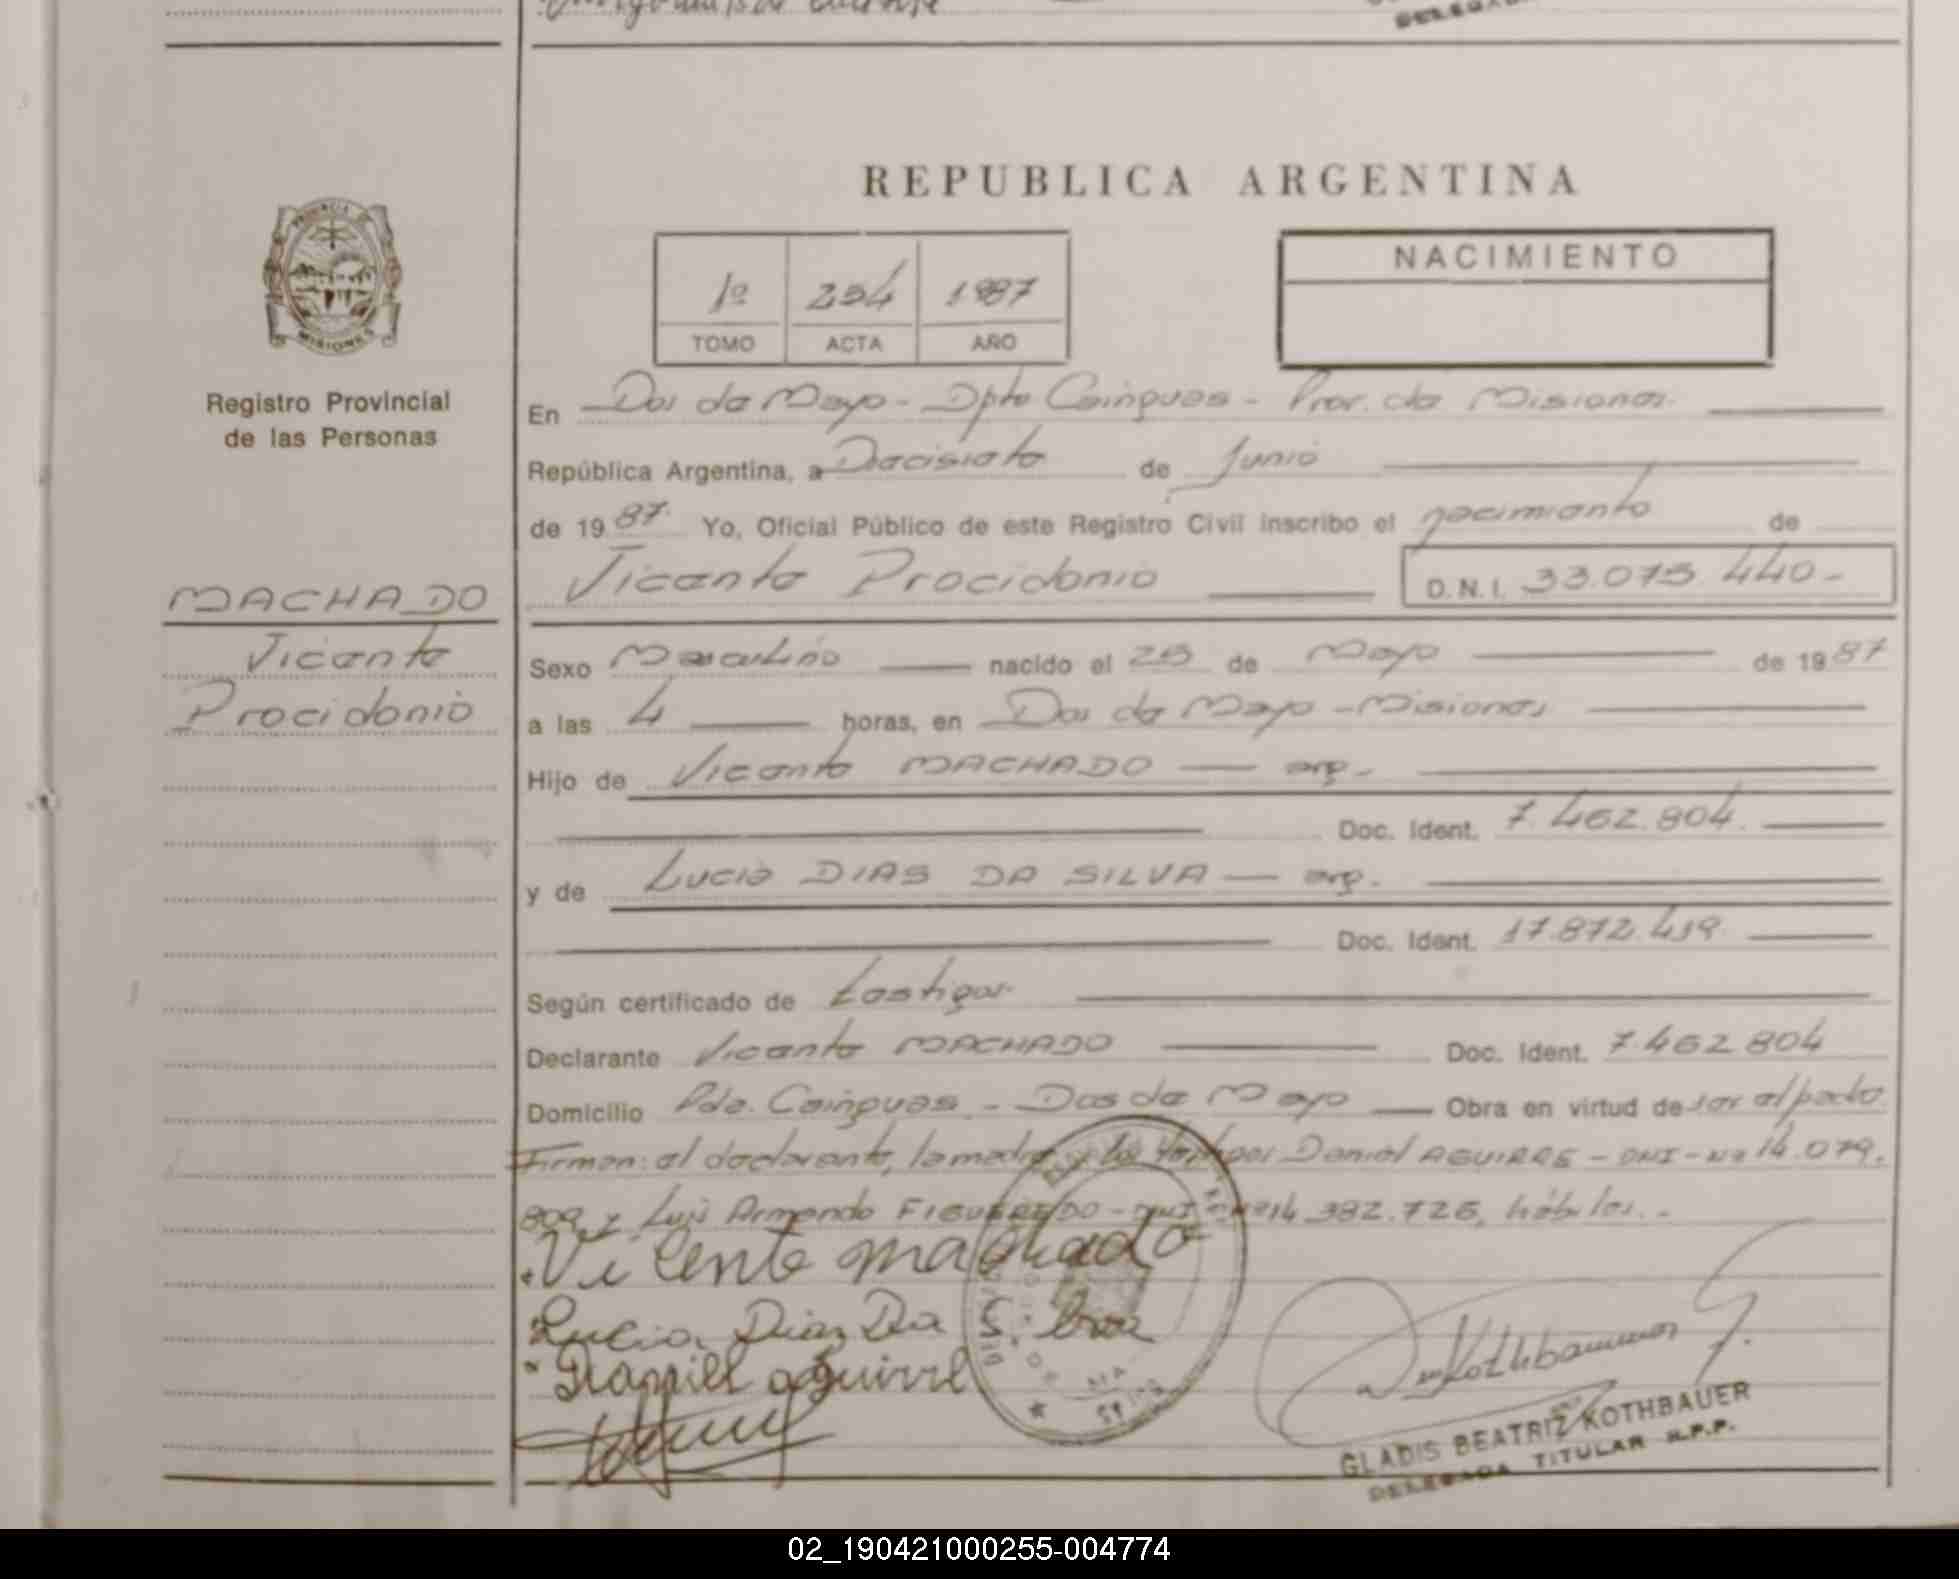 REPUBLICA ARGENTINA
PROVINCIA DE
MISIONES
Registro Provincial
de las Personas
NACIMIENTO
1º 254 1987
TOMO ACTA AÑO
En Dos de Mayo - Dpto Cainguas - Prov. de Misiones.
República Argentina, a Diecisiete de Junio
de 1987. Yo, Oficial Público de este Registro Civil inscribo el nacimiento de
Vicente Procidonio D.N.I. 33.075.440-
MACHADO
Vicente
Procidonio
Sexo Masculino nacido el 25 de Mayo de 1987
a las 4 horas, en Dos de Mayo - Misiones
Hijo de Vicente MACHADO — arg.
Doc. Ident. 7.462.804.
y de Lucia DIAS DA SILVA — arg.
Doc. Ident. 17.872.419.
Según certificado de testigos.
Declarante Vicente MACHADO Doc. Ident. 7.462.804
Domicilio Pda. Cainguas - Dos de Mayo — Obra en virtud de ser el padre
Firman: el declarante, la madre y los testigos Daniel AGUIRRE - DNI - Nº 14.079.
809 y Luis Armando FIGUEREDO - DNI - Nº 14.382.725, hábiles. -
Vicente machado
Lucia Diaz Da Silva
Daniel aguirre
Kothbauer G.
GLADIS BEATRIZ KOTHBAUER
DELEGADA TITULAR R.P.P.
02_190421000255-004774